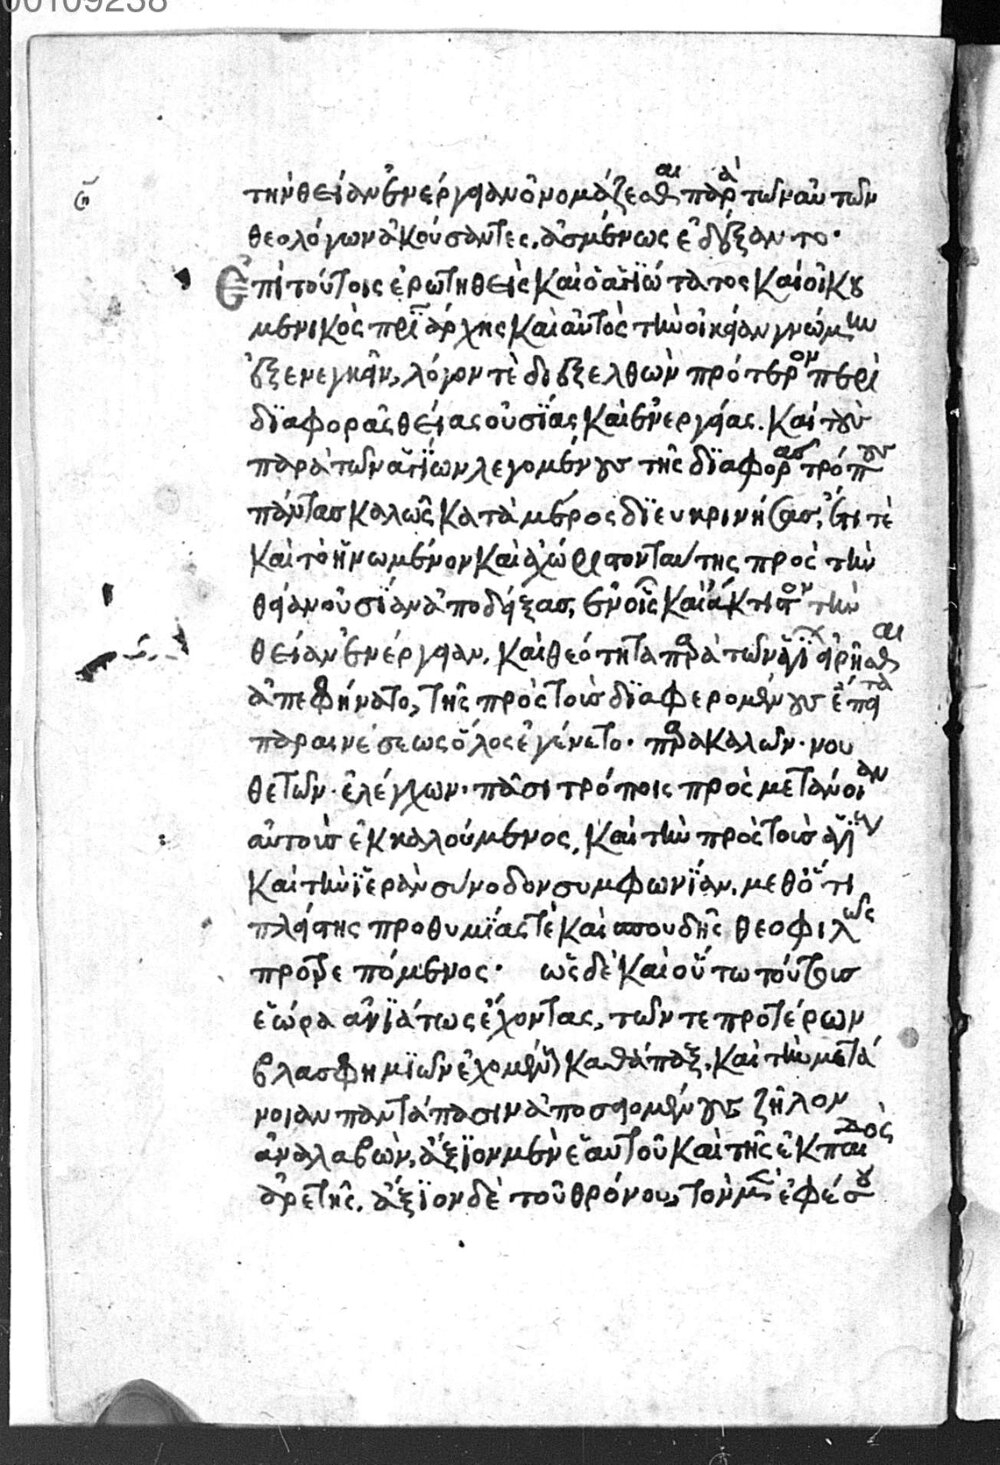 00109238
τὴν θείαν ἐνέργειαν ὀνομάζεσθαι παρὰ τῶν αὐτῶν
θεολόγων ἀκούσαντες, ἀσμένως ἐδέξαντο·
Ἐπὶ τούτοις ἐρωτηθεὶς καὶ ὁ ἁγιώτατος καὶ οἰκου
μενικὸς πατριάρχης καὶ αὐτὸς τὴν οἰκείαν γνώμην
ἐξενεγκεῖν, λόγον τὲ διεξελθὼν πρότερον περὶ
διαφορᾶς θείας οὐσίας καὶ ἐνεργείας. καὶ τοὺς
παρὰ τῶν ἁγίων λεγομένους τῆς διαφορᾶς τρόπους
πάντας καλῶς κατὰ μέρος διευκρινήσας, ἔτι τὲ
καὶ τὸ ἡνωμένον καὶ ἀχώριστον ταύτης πρὸς τὴν
θείαν οὐσίαν ἀποδείξας, ἐν οἷς καὶ ἄκτιστον τὴν
θείαν ἐνέργειαν. καὶ θεότητα παρὰ τῶν ἁγίων εἰρῆσθαι
ἀπεφήνατο, τῆς πρὸς τοὺς διαφερομένους ἔπειτα
παραινέσεως ὅλος ἐγένετο· παρακαλῶν· νου
θετῶν· ἐλέγχων· πᾶσι τρόποις πρὸς μετάνοιαν
αὐτοὺς ἐκκαλούμενος, καὶ τὴν πρὸς τοὺς ἁγίους
καὶ τὴν ἱερὰν σύνοδον συμφωνίαν. μεθ' ὅτι
πλείστης προθυμίας τὲ καὶ σπουδῆς θεοφιλῶς
προτρεπόμενος· ὡς δὲ καὶ οὕτω τούτους
ἑώρα ἀνιάτως ἔχοντας, τῶν τε προτέρων
βλασφημιῶν ἐχομένους καθάπαξ, καὶ τὴν μετά
νοιαν παντάπασιν ἀποσειομένους ζῆλον
ἀναλαβὼν, ἄξιον μὲν ἑαυτοῦ καὶ τῆς ἐκ παιδὸς
ἀρετῆς. ἄξιον δὲ τοῦ θρόνου, τὸν μὲν ἐφέσου